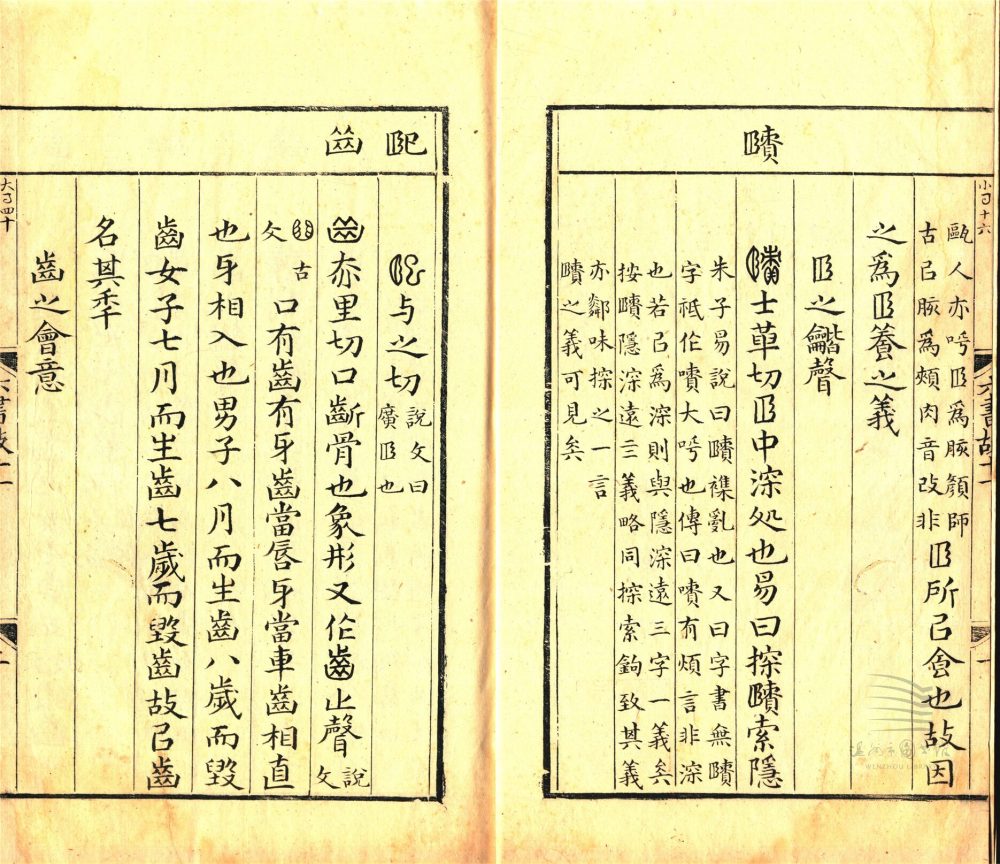 賾
甌人亦呼𦣞爲脄顏師
古㠯脄爲頰肉音改非
𦣞所㠯食也故因
之爲𦣞養之義
𦣞之龤聲
士革切𦣞中深処也易曰探賾索隱
朱子易說曰賾襍亂也又曰字書無賾
字祗作嘖大呼也傳曰嘖有煩言非深
也若㠯爲深則與隱深遠三字一義矣
按賾隱深遠三義略同探索鉤致其義
亦鄰味探之一言
賾之義可見矣
𦣞 齒
与之切
說文曰
廣𦣞也
齒 昌里切口齗骨也象形又作齒止聲
說文
古文
口有齒有牙齒當唇牙當車齒相直
也牙相入也男子八月而生齒八歲而毀
齒女子七月而生齒七歲而毀齒故㠯齒
名其年
齒之會意
小司十六
六書故十一
一
大司四十
溫州市圖書館
WENZHOU LIBRARY